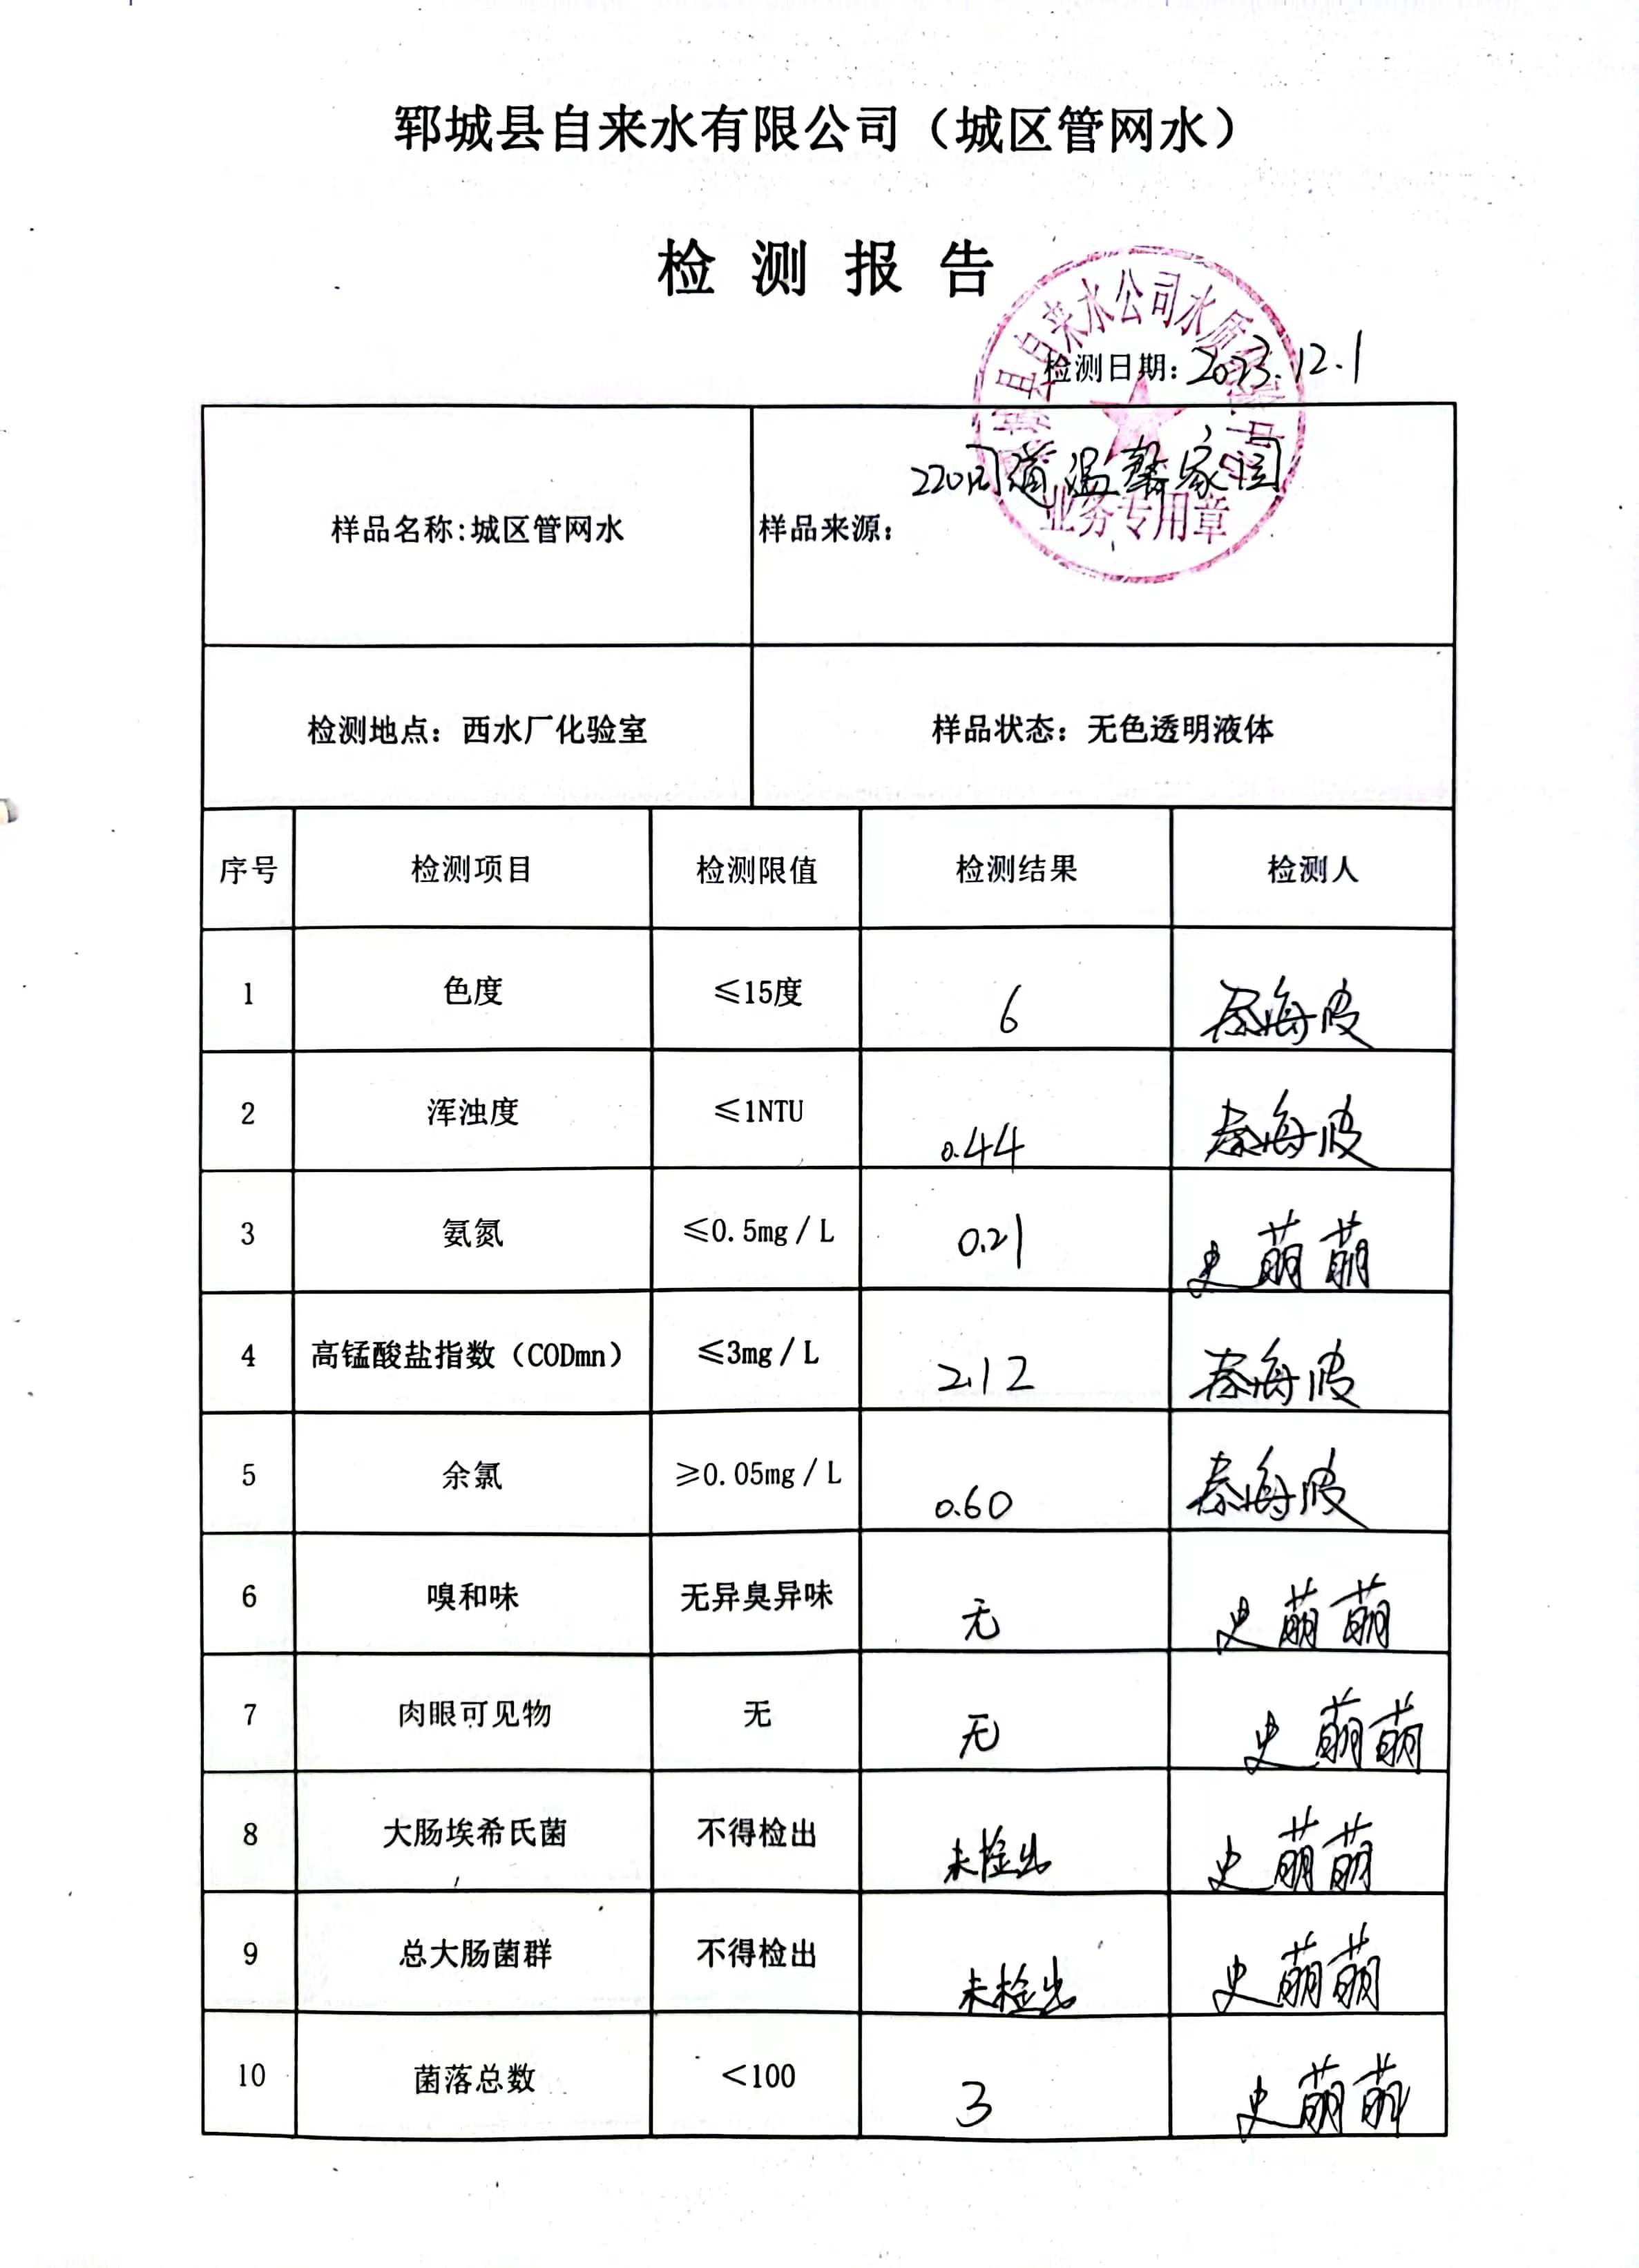 郓城县自来水有限公司（城区管网水）
检测报告
检测日期：2023.12.1
县自来水公司水质
业务专用章
样品名称:城区管网水
样品来源：220国道温馨家园
检测地点：西水厂化验室
样品状态：无色透明液体
序号 检测项目 检测限值 检测结果 检测人
1 色度 ≤15度 6 秦海波
2 浑浊度 ≤1NTU 0.44 秦海波
3 氨氮 ≤0.5mg/L 0.21 史萌萌
4 高锰酸盐指数（CODmn） ≤3mg/L 2.12 秦海波
5 余氯 ≥0.05mg/L 0.60 秦海波
6 嗅和味 无异臭异味 无 史萌萌
7 肉眼可见物 无 无 史萌萌
8 大肠埃希氏菌 不得检出 未检出 史萌萌
9 总大肠菌群 不得检出 未检出 史萌萌
10 菌落总数 <100 3 史萌萌